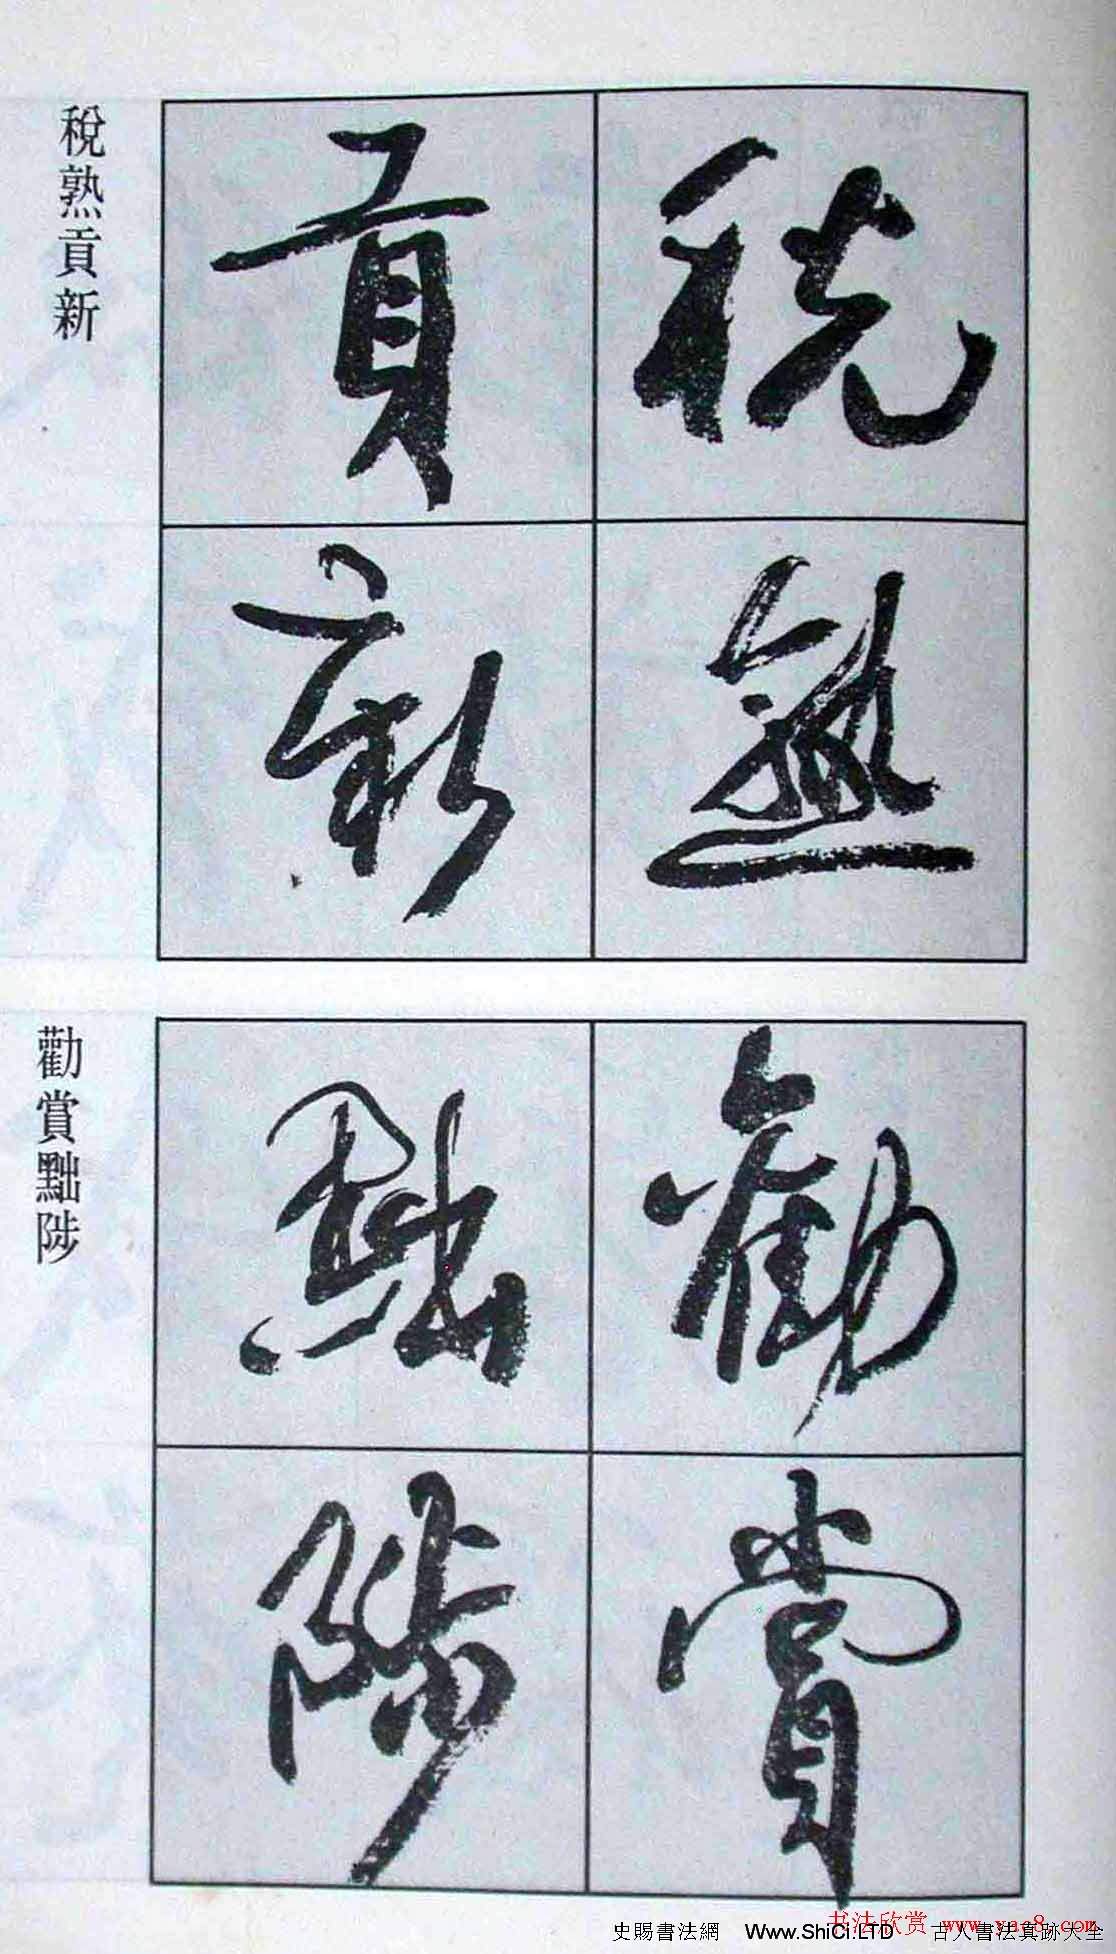 稅熟貢新
稅熟
貢新
勸賞黜陟
勸賞
黜陟
书法欣赏 www.yac8.com
史賜書法網 Www.ShiCi.LTD 古人書法真跡大全